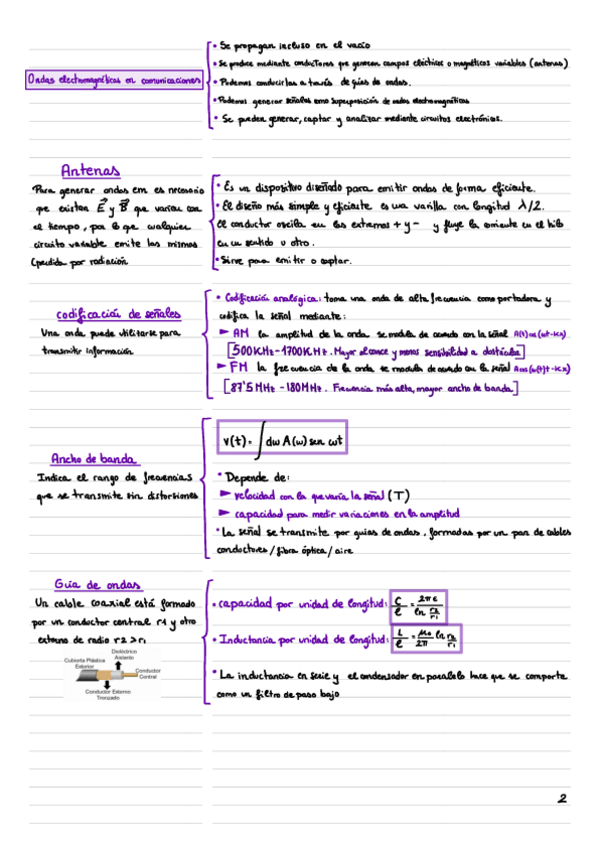 Ondas electromagnéticas en comunicaciones
• Se propagan incluso en el vacío
• Se produce mediante conductores que generan campos eléctricos o magnéticos variables (antenas)
• Podemos conducirlas a través de guías de ondas.
• Podemos generar señales como superposición de ondas electromagnéticas
• Se pueden generar, captar y analizar mediante circuitos electrónicos.
Antenas
Para generar ondas em es necesario
que existan E y B que varíen con
el tiempo, por lo que cualquier
circuito variable emite las mismas
(perdida por radiación
• Es un dispositivo diseñado para emitir ondas de forma eficiente.
• El diseño más simple y eficiente es una varilla con longitud λ/2.
El conductor oscila en los extremos + y - y fluye la corriente en el hilo
en un sentido u otro.
• Sirve para emitir o captar.
codificación de señales
Una onda puede utilizarse para
transmitir información
• Codificación analógica: toma una onda de alta frecuencia como portadora y
codifica la señal mediante:
► AM la amplitud de la onda se modula de acuerdo con la señal A(t)cos(ωt-kx)
[500KHz-1700KHz. Mayor alcance y menos sensibilidad a obstáculos]
► FM la frecuencia de la onda se modula de acuerdo con la señal Acos(ω(t)t-kx)
[87'5MHz -180MHz. Frecuencia más alta, mayor ancho de banda]
Ancho de banda
Indica el rango de frecuencias
que se transmite sin distorsiones
v(t)= ∫dω A(ω) sen ωt
• Depende de:
► velocidad con la que varía la señal (T)
► capacidad para medir variaciones en la amplitud
• La señal se transmite por guías de ondas, formadas por un par de cables
conductores/fibra óptica/aire
Guía de ondas
Un cable coaxial está formado
por un conductor central r1 y otro
externo de radio r2>r1
Dieléctrico
Aislante
Cubierta Plástica
Exterior
Conductor
Central
Conductor Externo
Trenzado
• capacidad por unidad de longitud: C/ℓ = 2πε/ln r2/r1
• Inductancia por unidad de longitud: L/ℓ = μ0/2π ln r2/r1
• La inductancia en serie y el condensador en paralelo hace que se comporte
como un filtro de paso bajo
2